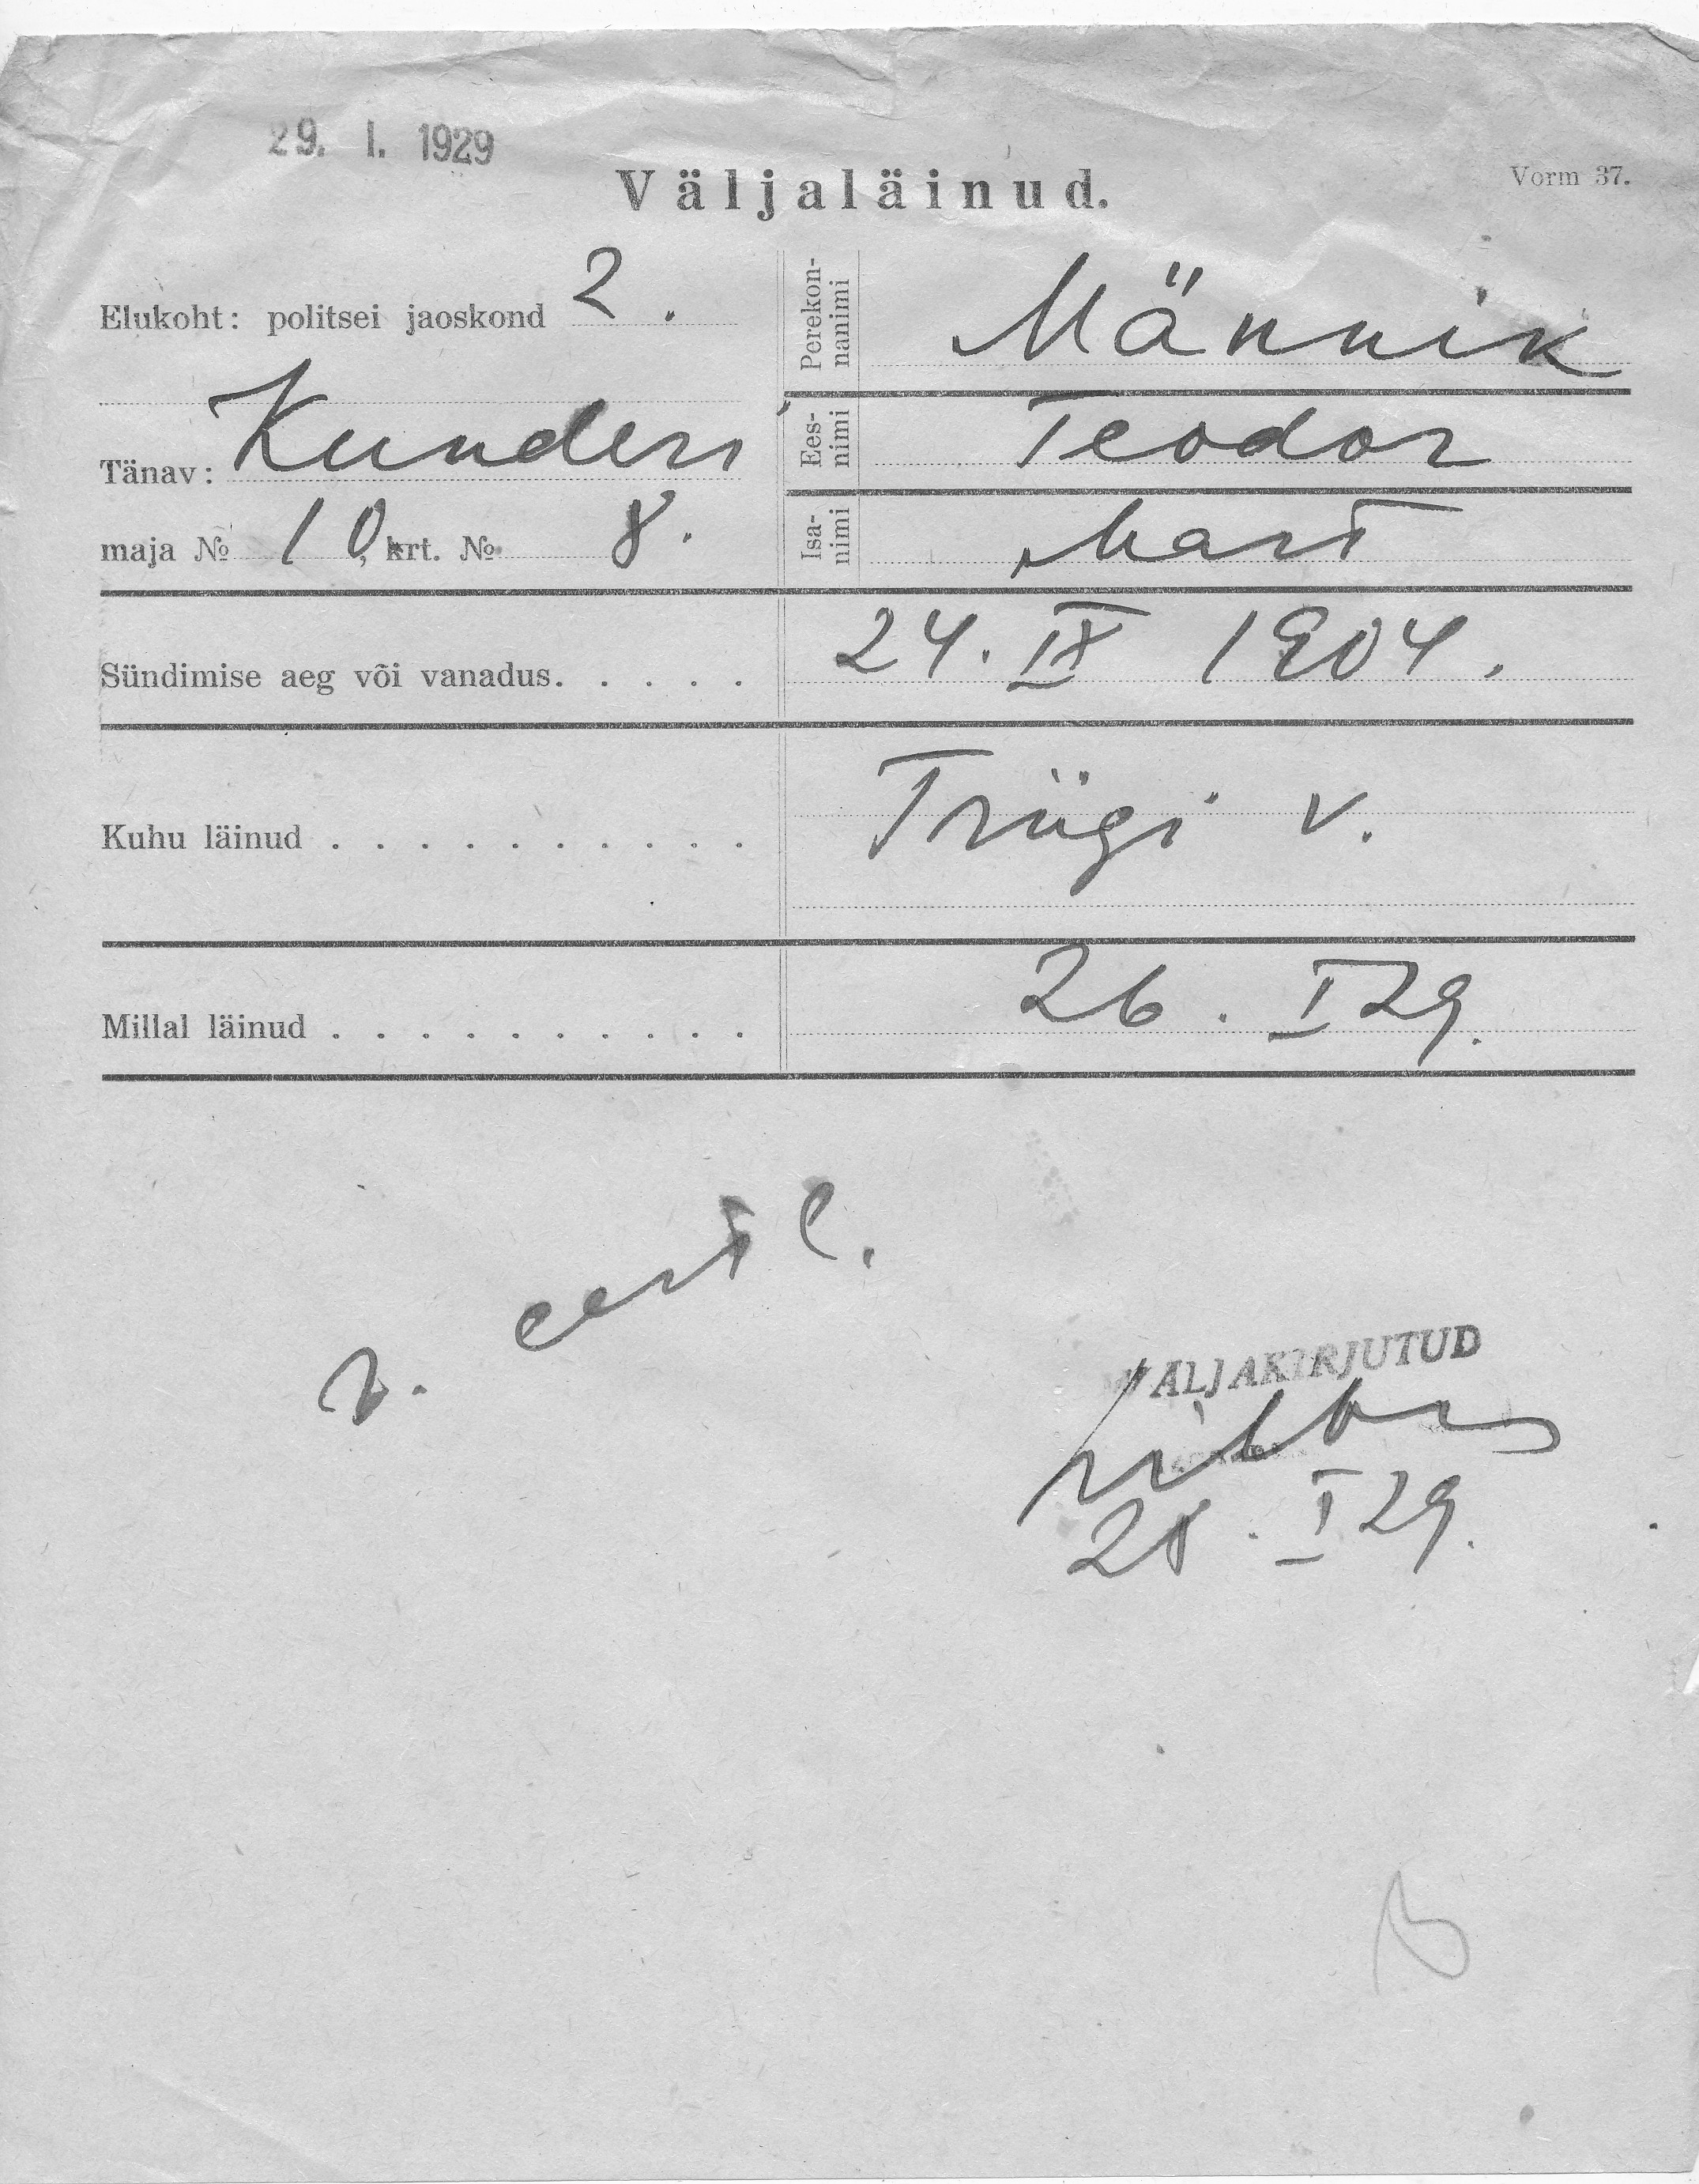 29. I. 1929
Väljaläinud.
Vorm 37.
Elukoht: politsei jaoskond 2.
Tänav: Kunderi
maja № 10, krt. № 8.
Perekon-
nanimi
Männik
Ees-
nimi
Teodor
Isa-
nimi
Mart
Sündimise aeg või vanadus. . . . . 24. IX 1904.
Kuhu läinud . . . . . . . . . . Triigi v.
Millal läinud . . . . . . . . . . 26. I 29.
eestl.
VÄLJAKIRJUTUD
28. I 29.